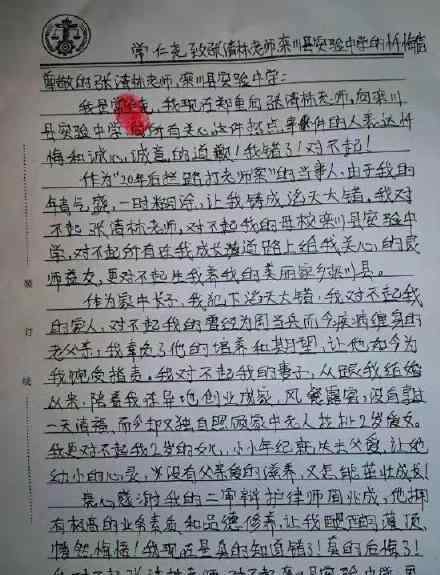 常仁尧致张清林老师,栾川县实验中学的忏悔信
尊敬的张清林老师,栾川县实验中学:
我是常仁尧,我现在郑重向张清林老师,向栾川
县实验中学,向所有关心这件热点事件的人表达忏
悔和诚心诚意的道歉!我错了!对不起!
作为"20年后拦路打老师案"的当事人,由于我的
年青气盛,一时糊涂,让我铸成滔天大错,我对
不起张清林老师,对不起我的母校栾川县实验中
学,对不起所有在我成长道路上给我关心的良
师益友,更对不起生我养我的美丽家乡栾川县。
作为家中长子,我犯下滔天大错,我对不起我
的家人,对不起我的曾经为国当兵而今疾病缠身的
老父亲,我辜负了他的培养和期望,让他如今为
我饱受指责。我对不起我的妻子,从跟我结婚
以来,陪着我在异地创业成家,风餐露宿,没有享过
一天清福,而今却又独自照顾家中老人抚扎2岁爱女。
我更对不起我2岁的女儿,小小年纪就失去父爱,让她
幼小的心灵,少没有父亲爱的滋养,又怎能茁壮成长!
衷心感谢我的二审辩护律师周兆成,他拥
有极高的业务素质和品德修养,让我醍醐灌顶,
幡然悔悟!我现在是真的知道错了!真的后悔了!
装
订
线